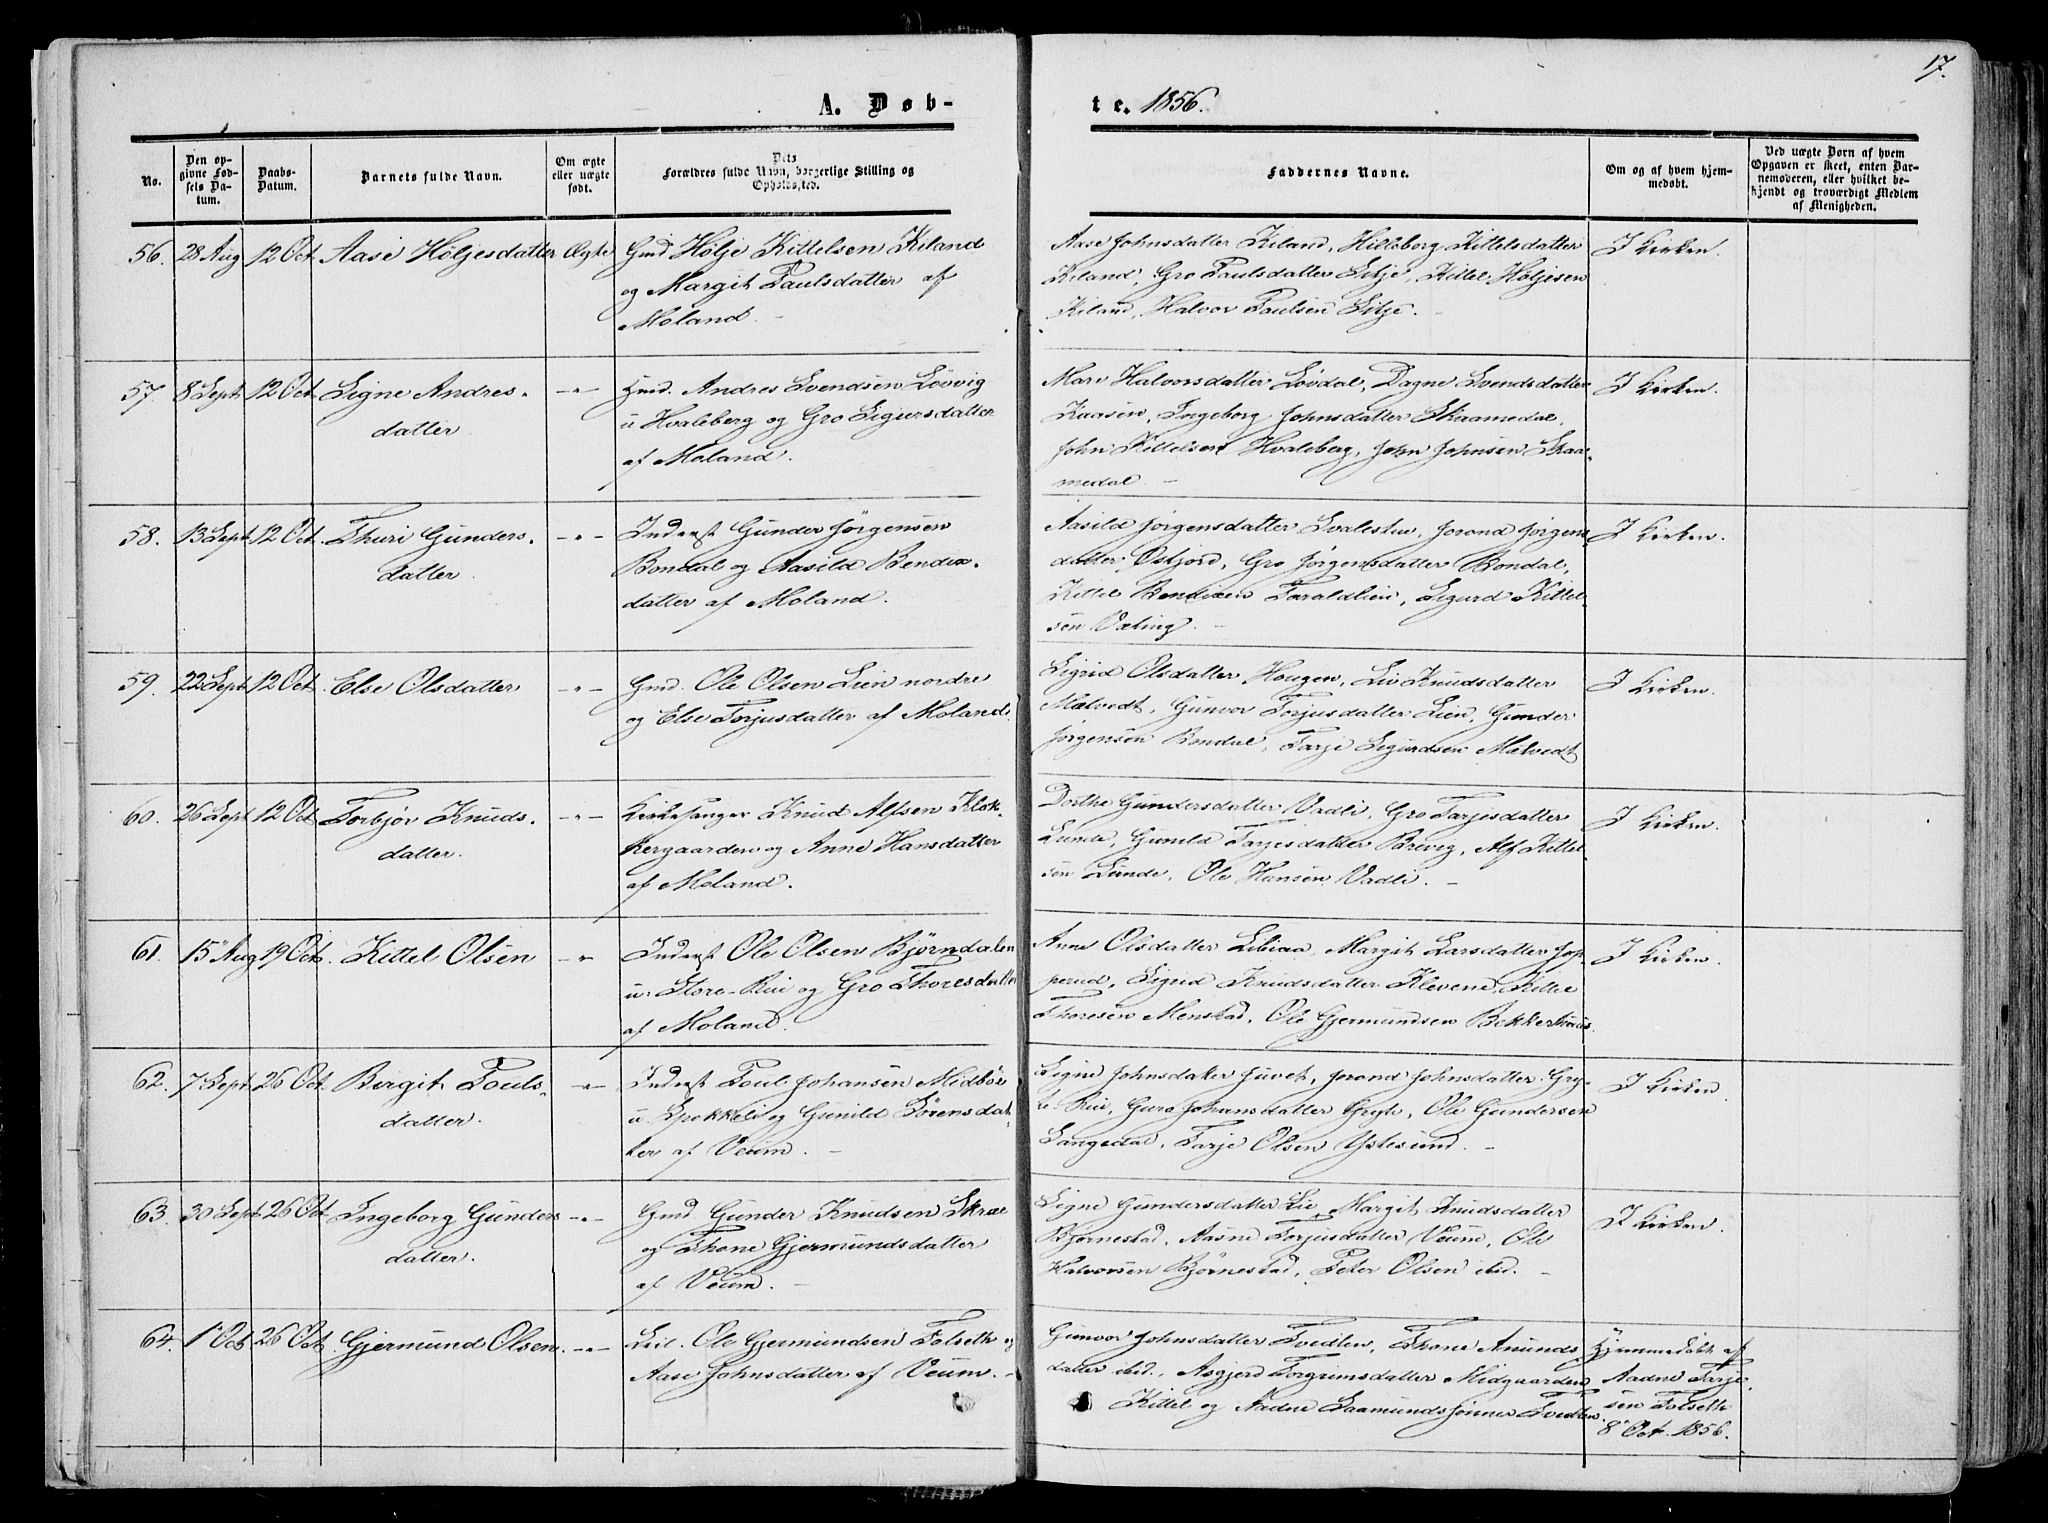 17.
A. Døb-
te. 1856.
No.
Den op-
givne Fød-
sels Da-
tum.
Daabs-
Datum.
Barnets fulde Navn.
Om ægte
eller uægte
født.
Dets
Forældres fulde Navn, borgerlige Stilling og
Opholdssted.
Faddernes Navne.
Om og af hvem hjem-
medøbt.
Ved uægte Børn af hvem
Opgaven er skeet, enten Bar-
nemoderen, eller hvilket be-
kjendt og troværdigt Medlem
af Menigheden.
56. 28 Aug 12 Oct. Aase Høljesdatter Ægte
Gmd Hølje Kittelsen Kiland
og Margit Paulsdatter af
Moland.
Aase Johnsdatter Kiland, Hilleborg Kittelsdatter
Kiland, Gro Paulsdatter Sitje, Kittel Høljesen
Kiland, Halvor Paulsen Sitje.
I Kirken.
57. 8 Sept. 12 Oct. Signe Andres-
datter
Hmd. Andres Svendsen Løvvig
u Hvaleberg og Gro Sigursdatter
af Moland.
Mari Halvorsdatter Løvdal, Dagne Svendsdatter
Kaasen, Ingeborg Johnsdatter Skaamedal,
John Kittelsen Hvaleberg, John Johnsen Skaa-
medal.
I Kirken.
58. 13 Sept. 12 Oct. Thuri Gunders-
datter
Inderst Gunder Jørgensen
Bondal og Aasild Bendix-
datter af Moland.
Aasild Jørgensdatter Svalestu, Jorond Jørgens-
datter Østjord, Gro Jørgensdatter Bondal,
Kittel Bendixen Taraldlien, Sigurd Kittel-
sen Væting.
I Kirken.
59. 22 Sept. 12 Oct. Else Olsdatter
Gmd. Ole Olsen Lien nordre
og Else Torjusdatter af Moland.
Sigrid Olsdatter Hougen, Liv Knudsdatter
Malvedt, Gunvor Torjusdatter Lien, Gunder
Jørgensen Bondal, Tarje Sigurdsen Malvedt
I Kirken.
60. 26 Sept. 12 Oct. Torbjør Knuds-
datter.
Kirkesanger Knud Alfsen Klok-
kergaarden og Anne Hansdatter
af Moland.
Dorthe Gundersdatter Vadli, Gro Tarjesdatter
Lunde, Gunild Tarjesdatter Brevig, Alf Kittel-
sen Lunde, Ole Hansen Vadli.
I Kirken.
61. 15 Aug 19 Oct. Kittel Olsen
Inderst Ole Olsen Bjørndalen
u. Store-Rui og Gro Thoresdatter
af Moland.
Anne Olsdatter Libiaa, Margit Larsdatter Jop-
perud, Sigrid Knudsdatter Klevene, Kittel
Thoresen Menstad, Ole Gjermundsen Bekkerhuus.
I Kirken.
62. 7 Sept. 26 Oct. Birgit Pouls-
datter.
Inderst Poul Johansen Midbøe
u. Spokkeli og Gunild Sørensdat-
ter af Veum.
Signe Johnsdatter Juvet, Jorond Johnsdatter Gry-
te-Rui, Guro Johansdatter Gryte, Ole Gundersen
Langedal, Tarje Olsen Ystesund.
I Kirken.
63. 30 Sept. 26 Oct. Ingeborg Gunders-
datter.
Gmd Gunder Knudsen Skræ
og Thone Gjermundsdatter
af Veum.
Signe Gundersdatter Lie, Margit Knudsdatter
Bjørnestad, Aasne Torjusdatter Veum, Ole
Halvorsen Bjørnestad, Peter Olsen ibid.
I Kirken.
64. 1 Oct 26 Oct. Gjermund Olsen
Leil. Ole Gjermundsen Folseth og
Aase Johnsdatter af Veum.
Gunvor Johnsdatter Tvedten, Thone Anunds
datter ibid., Asgjerd Torgrimsdatter Midgaarden,
Kittel og Aadne Saamundssønner Tvedten.
Hjemmedøbt af
Aadne Tarje-
sen Folseth
8' Oct. 1856.